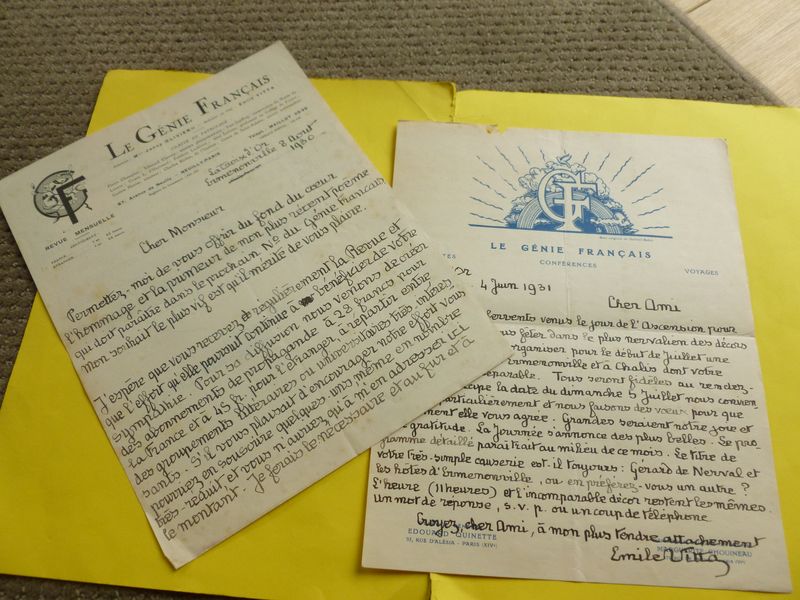 LE GÉNIE FRANÇAIS
REVUE MENSUELLE
La Croix d'Or
Ermenonville 8 Août
1930
Cher Monsieur
Permettez-moi de vous offrir du fond du cœur
l'hommage et la primeur de mon plus récent poème
qui doit paraître dans le prochain N° du Génie Français
mon souhait le plus vif est qu'il mérite de vous plaire.
J'espère que vous recevez régulièrement la Revue et
que l'effort qu'elle poursuit continue à bénéficier de votre
sympathie. Pour sa diffusion nous venons de créer
des abonnements de propagande à 28 francs pour
la France et à 45 fr. pour l'étranger à répartir entre
des groupements littéraires ou universitaires très intéres
sants. S'il vous plaisait d'encourager notre effort vous
pourriez en souscrire quelques-uns même en nombre
très réduit et vous n'auriez qu'à m'en adresser ici
le montant. Je ferais le nécessaire et au fur et à
GF
LE GÉNIE FRANÇAIS
CONFÉRENCES
VOYAGES
4 Juin 1931
Cher Ami
fervents venus le jour de l'Ascension pour
fêter dans le plus nervalien des décors
organiser pour le début de Juillet une
Ermenonville et à Chalis dont votre
séparable. Tous seront fidèles au rendez-
la date du dimanche 5 Juillet nous conven-
particulièrement et nous faisons des vœux pour que
elle vous agrée. Grandes seraient notre joie et
gratitude. La Journée s'annonce des plus belles. Le pro-
gramme détaillé paraîtrait au milieu de ce mois. Le titre de
votre très-simple causerie est-il toujours : Gérard de Nerval et
les hôtes d'Ermenonville, ou en préférez-vous un autre ?
L'heure (11 heures) et l'incomparable décor restent les mêmes.
Un mot de réponse, s.v.p. ou un coup de téléphone
Croyez, cher Ami, à mon plus tendre attachement
Emile Vitta
EDOUARD GUINETTE
51, RUE D'ALÉSIA - PARIS (XIV)